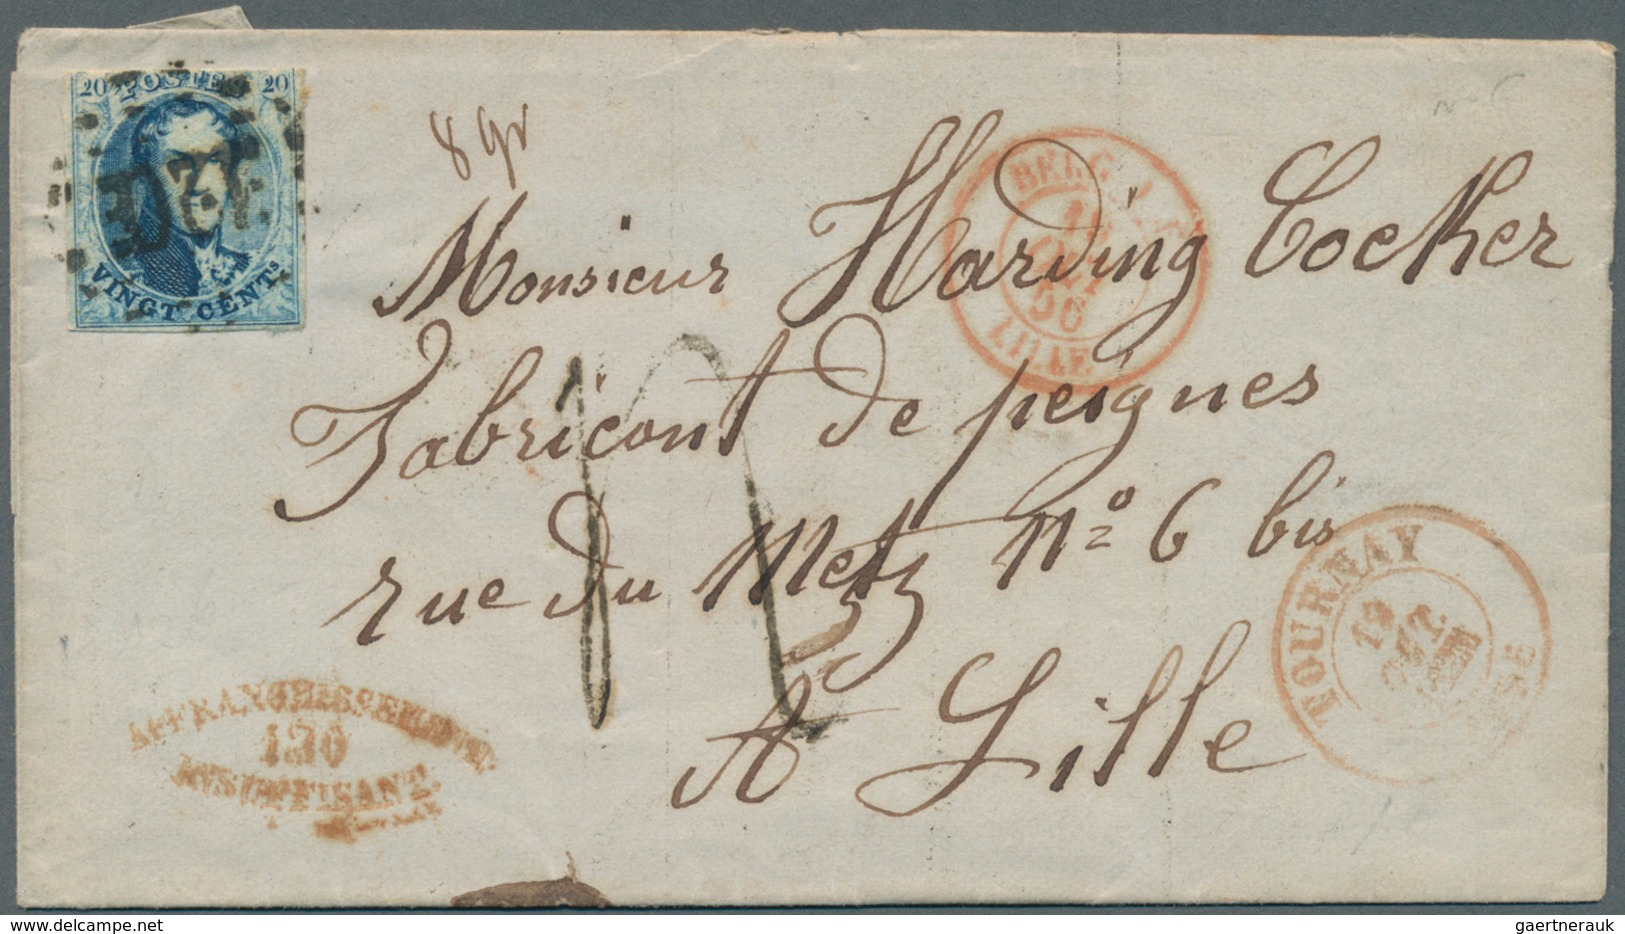 20 POSTES 20
VINGT CENTS
8 gr
BELG.
12
OCT
56
LILLE
Monsieur Harding Cocker
Fabricant de peignes
rue du Metz No 6 bis
A Lille
TOURNAY
12
OCT.
AFFRANCHISSEMENT
INSUFFISANT.
delcampe.net
gaertnerauk